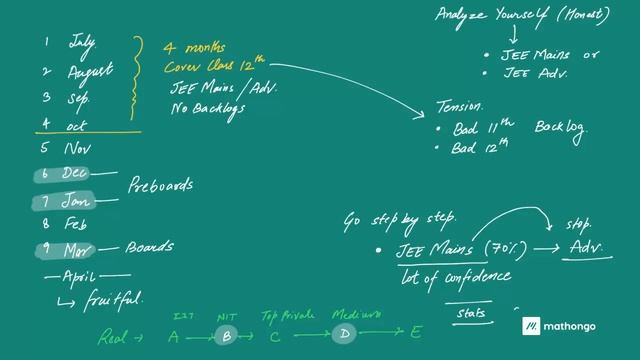 1 July.
2 August
3 Sep.
4 oct
5 Nov
6 Dec
7 Jan
8 Feb
9 Mar
April
fruitful.
4 months
Cover Class 12th
JEE Mains / Adv.
No Backlogs
Preboards
Boards
Analyze Yourself (Honest)
• JEE Mains or
• JEE Adv.
Tension.
• Bad 11th Backlog
• Bad 12th
Go step by step.
stop.
• JEE Mains (70%) → Adv.
lot of confidence
stats
IIT NIT Top Private Medium
Real → A → B → C → D → E
mathongo